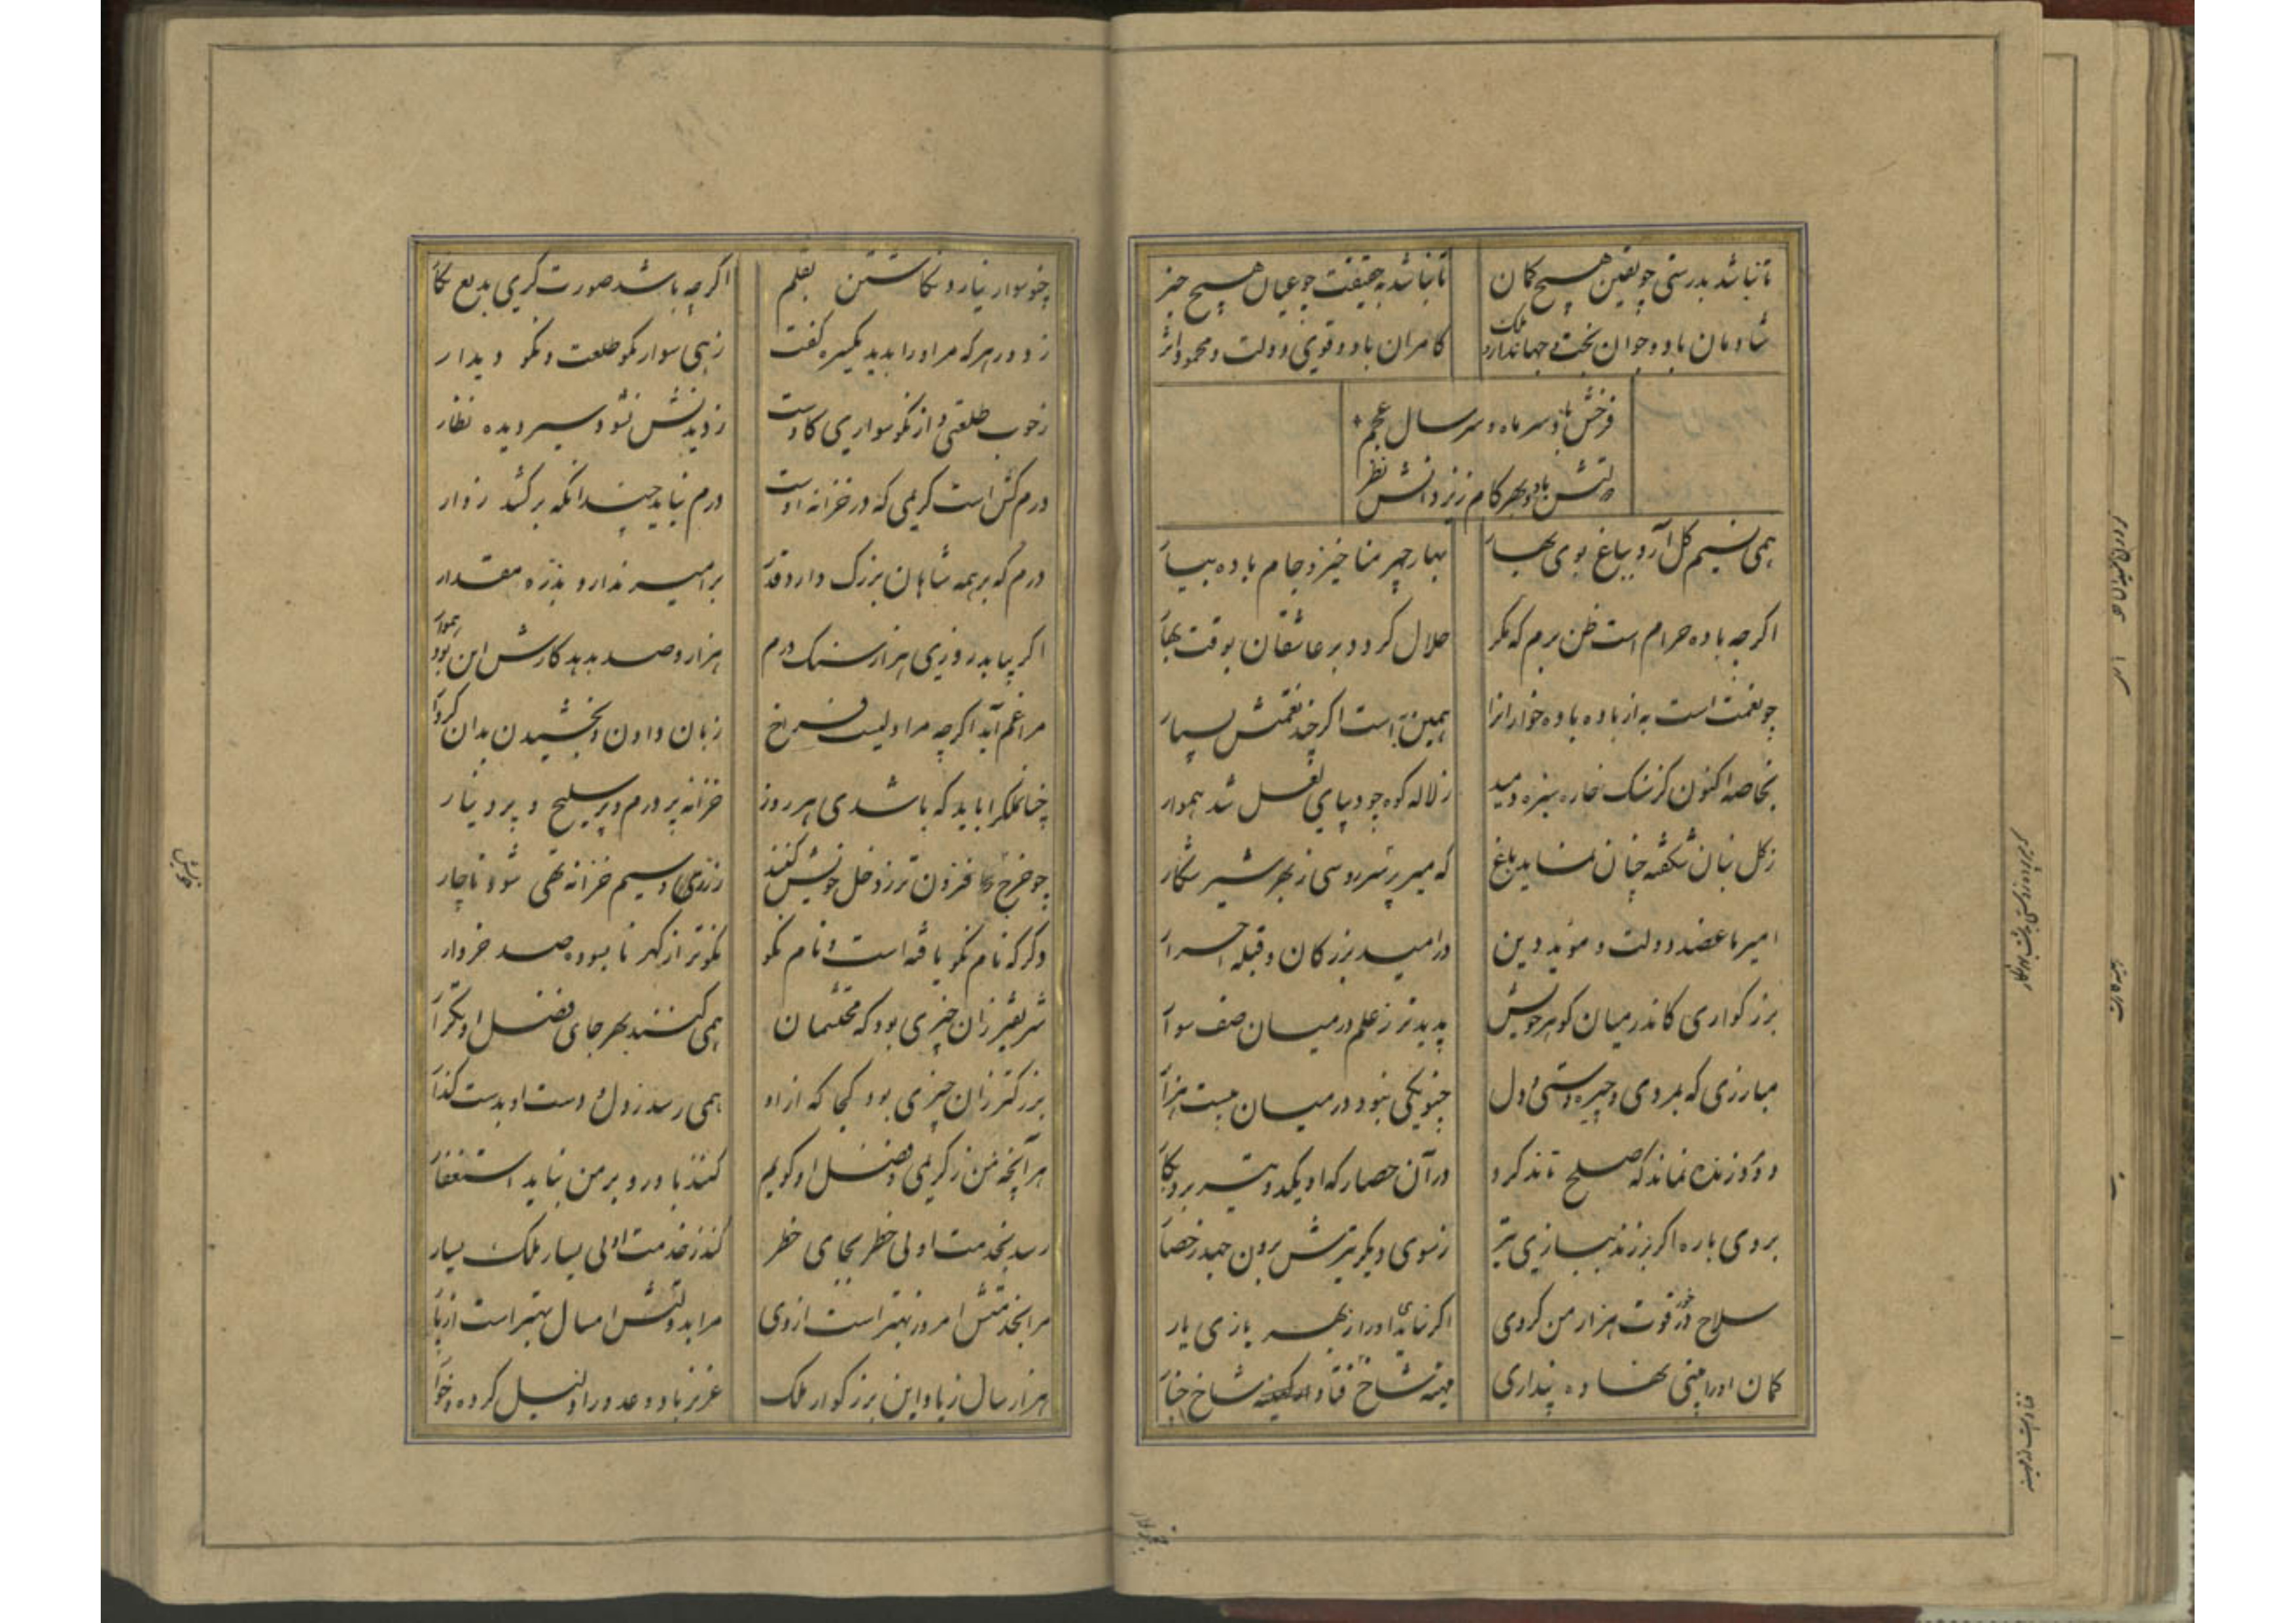 تا نباشد بدرستی چو یقین هیچ کمان تا نباشد به حقیقت چو عیان هیچ خبر
شادمان باد و جوان بخت و جهاندار ملک کامران باد و قوی دولت و محمود اثر
فرخش باد سر ماه و سر سال عجم
دلش باد بهر کام زیزدانش نظر
همی نسیم کل آرد بباغ بوی بهار بهار چهر منا خیز و جام باده بیار
اکرچه باده حرام است ظن برم که مکر حلال کردد بر عاشقان بوقت بهار
چو نعمت است به از باده باده خوارانرا همین به است اکرچند نعمتش بسیار
بخاصه اکنون کز سنک خاره سبزه دمید ز لاله کوه چو دیبای لعل شد هموار
ز کل نبان شکفته چنان نماید باغ که میر پره زدستی ز بهر شیر شکار
امیر ما عضد دولت و موید دین در امید بزرکان و قبله احرار
بزرکواری کاندر میان کوهر خویش پدیدتر ز علم در میان صف سوار
مبارزی که بمردی و چیره دستی و دل چنو یکی نبود در میان بیست هزار
دو روز زنده نماند که صلح تاند کرد در آن حصار که او یکدو تیر برد بکار
بروی باره اکر بر زند ببازی تیر ز سوی دیکر تیرش برون جهد ز حصار
سلاح در خور قوت هزار من کردی اکر نیابدی او را ز بهر بازی یار
کمان او را بینی نهاده پنداری مهینه شاخ فتاد و کمینه شاخ چنار
چنو سوار نیارد نکاشتن بقلم اکرچه باشد صورت کری بدیع نکار
ز دور هر که مر او را بدید یکسره کفت زهی سوار نکو طلعت و نکو دیدار
ز خوب طلعتی و از نکو سواری کاوست ز دیدنش نشود سیر دیده نظار
درم کش است کریمی که در خزانه اوست درم نیاید چندانکه بر کشد زوار
درم که بر همه شاهان بزرک دارد قدر بر امیر ندارد بذره مقدار
اکر بیابد روزی هزار سنک درم هزار و صد بدهد کارش این بود هموار
مرا غم آید اکرچه مرا دلیست فراخ ز مان دادن و بخشیدن بدان کردار
خزانه ملکرا باید که باشدی هر روز خزانه پر درم و پر سلیح و پر دینار
چو خرج افزون تر ز دخل خویش کنند ز زر و سیم خزانه تهی شود ناچار
دکر که نام نکو یافته است و نام نکو نکوتر از کهر نابسوده صد خروار
شریفتر زان چیزی بود که محتشمان همی کنند بهر جای فضل او تکرار
بزرکتر زان چیزی بود کجا که از او همی رسد ز دل و دست او بدست کذار
هر آنچه من ز کریمی و فضل او کویم کنند باور و بر من نباید استغفار
رسد بخدمت او بی خطر بجای خطر کند ز خدمت او بی یسار ملک یسار
مرا بخدمتش امروز بهتر است از دی مرا بدولتش امسال بهتر است از پار
هزار سال زیاد این بزرکوار ملک عزیز باد و عدو را ذلیل کرده و خوار